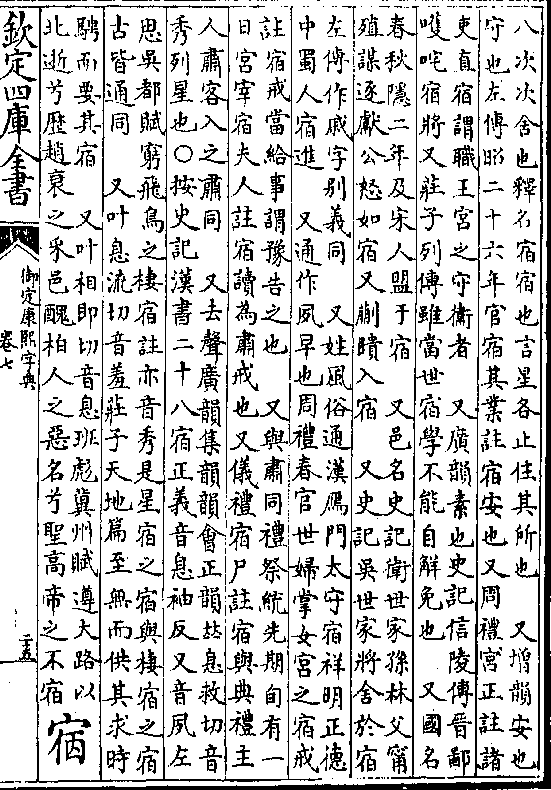 八次次舍也釋名宿宿也言星各止住其所也　又增韻安也
守也左傳昭二十六年官宿其業註宿安也又周禮宮正註諸
吏直宿謂職王宮之守衞者　又廣韻素也史記信陵傳晉鄙
嚄唶宿將又莊子列傳雖當世宿學不能自解免也　又國名
春秋隱二年及宋人盟于宿　又邑名史記衞世家孫林父甯
殖謀逐獻公怒如宿又蒯聵入宿　又史記吳世家將舍於宿
左傳作戚字別義同　又姓風俗通漢鴈門太守宿祥明正德
中蜀人宿進　又通作夙早也周禮春官世婦掌女宮之宿戒
註宿戒當給事謂豫告之也　又與肅同禮祭統先期旬有一
日宮宰宿夫人註宿讀為肅戒也又儀禮宿尸註宿與曲禮主
人肅客入之肅同　又去聲廣韻集韻韻會正韻𠀤息救切音
秀列星也○按史記漢書二十八宿正義音息袖反又音夙左
思吳都賦窮飛鳥之棲宿註亦音秀是星宿之宿與棲宿之宿
古皆通同　又叶息流切音羞莊子天地篇至無而供其求時
騁而要其宿　又叶相即切音息班彪冀州賦遵大路以
北逝兮歷趙衰之采邑醜柏人之惡名兮聖高帝之不宿
宿
欽定四庫全書
御定康熙字典
卷七
二十五